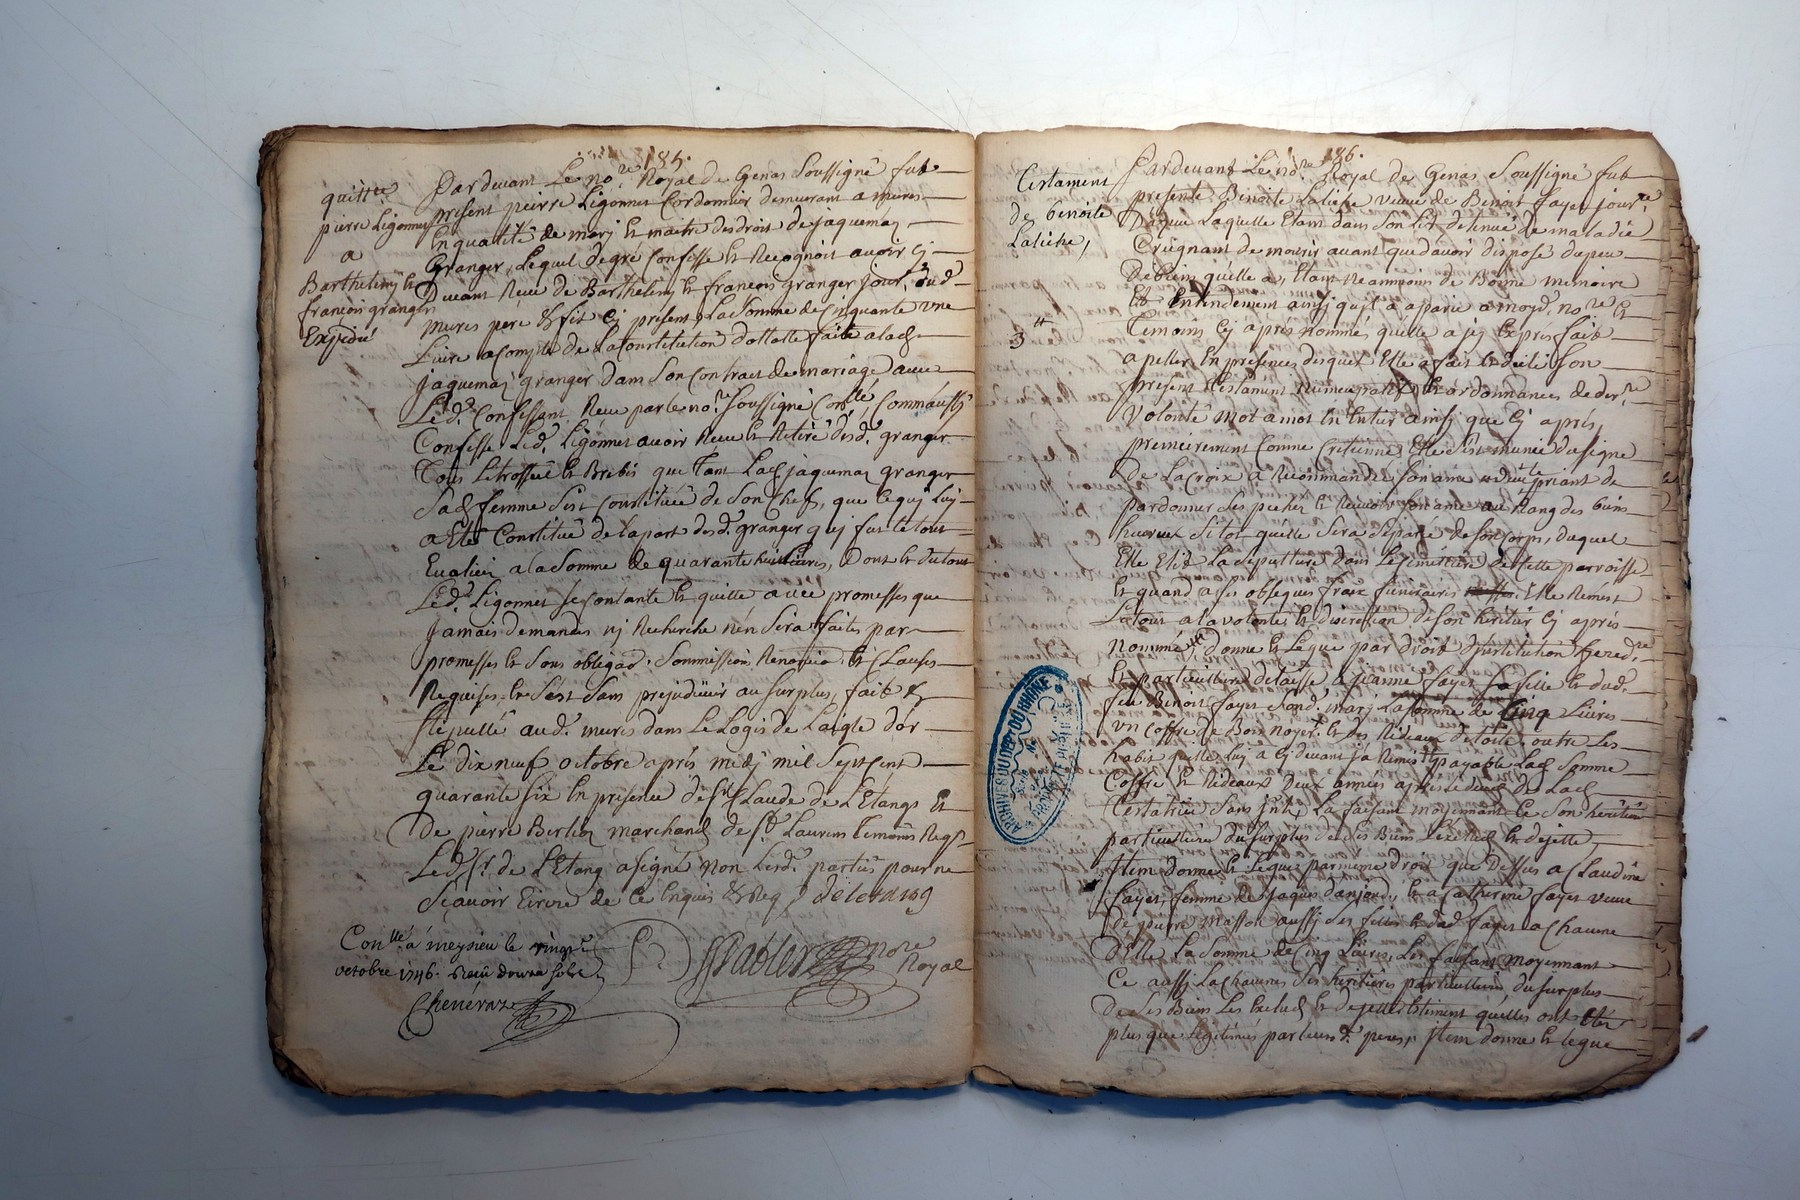 185.
quitt.ce
pierre Ligonnet
a
Barthelemy et
françois granger
Expedié
Pardevant Le no.re Royal de Genas Soussigné fut
present pierre Ligonnet Cordonnier demeurant a mures
En qualité de mary et maitre des droit de jaquema
Granger, Lequel de gré Confesse et Recognoit avoir Cy
Devant Receu de Barthelemy et françois granger jour.rs dud.
mures pere et fils Cy present, La Somme de Cinquante une
Livre acompte de La Constitution dottalle faite a lad.
jaquema granger dans Son Contract de mariage avec
Led. Confessant Receu par le no.re Soussigné Con.llé, Comm'aussy
Confesse Led. Ligonnet avoir Receu et Retiré desd. granger
Tous Le trossel et Brebis que tant Lad. jaquema granger
Sad. femme S'est Constituée de Son Chef, que Ce quy Luy
a Eté Constitué de la part desd. granger quj fut le tout
Evalüé a la Somme de quarante huit Livres, Dont et du tout
Led. Ligonnet Se Contante et quitte avec promesses que
Jamais demandes nj Recherche n'en Sera faites par
promesses et Sous obligaõ. Soummission, Renonciaõ. et Clauses
Requises et S'est Sans prejudicier au Surplus, fait et
Stipullé aud. mures dans Le Logis de Laigle d'or
Le dix neuf octobre après midj mil Sept Cent
quarante Six En presence de S.r Claude de L'Etang et
De pierre Berlioz marchand de S.t Laurens temoins Reqs.
Led. S.r de L'Etang a signé non Lesd. parties pour ne
Sçavoir Ecrire de Ce Enquis et Req. deletang
Con.llé a meysieu le vingt
octobre 1746. Reçû douze sols
Cheneraz
no.re
Royal
186.
Testament
de benoite
Latiche,
3.tt
Pardevant Le no.re Royal de Genas Soussigné fut
presente Benoite Latiche veuve de Benoit fayet jour.re
Laquelle Etant dans Son Lit detenüe de maladie
Creignant de mourir avant que d'avoir disposé du peu
De biens qu'elle a, Etant Neanmoins de Bonne memoire
Et Entendement ainsy qu'il a aparu a moyd. no.re et
Temoins Cy après nommé, quelle a fiy Exprès fait
apeller En presences desquels Elle a fait et dicté Son
present Testament Nuncupatif et ordonnances de der.re
volonté mot a mot En Entier ainsy que Cy après,
premierement Comme Cretienne Elle S'est munie du Signe
De La Croix a Recommandé Son ame a dieu Le priant de
pardonner Ses pechez et Recevoir Son ame au Rang des biens
heureux Sitot qu'elle Sera Separée de Son Corps, duquel
Elle Elit La Sepulture dans Le Cimetiere de Cette parroisse
Et quand a Ses obseques fraix funeraires Elle Remet
Le tout a la volonté et discretion de Son heritier Cy après
Nommé, Item donne et Legue par droit d'institution hered.re
Et particulliere delaisse, a jeanne fayet Sa fille et dud.
feu Benoit fayet Sond. mary La Somme de Cinq Livres
un Coffre de Bois noyer et des Rideaux de toile outre Les
habit qu'elle Luy a Cy devant ja Remis, payable Lad. Somme
Coffre et Rideaux Deux années après Le deceds de Lad.
Testatrice Sans jnth. La faisant moyennant Ce Son heritiere
particulliere du Surplus de Ses Biens L'exclud et dejette,
Item donne et Legue par même droit que Dessus a Claudine
fayet, femme de jaques danjoud, et a Catherine fayet veuve
De pierre masson aussy Ses filles et dud. fayet a Chacune
D'elle La Somme de Cinq Livres, Les faisant moyennant
Ce aussy La Chacunes Ses heritieres particulliere du Surplus
De Ses Biens Les Exclud et dejette Estiment qu'elles ont Eté
plus que Legitimés par leurd. pere, Item donne et Legue
ARCHIVES DU DEP.T DU RHONE